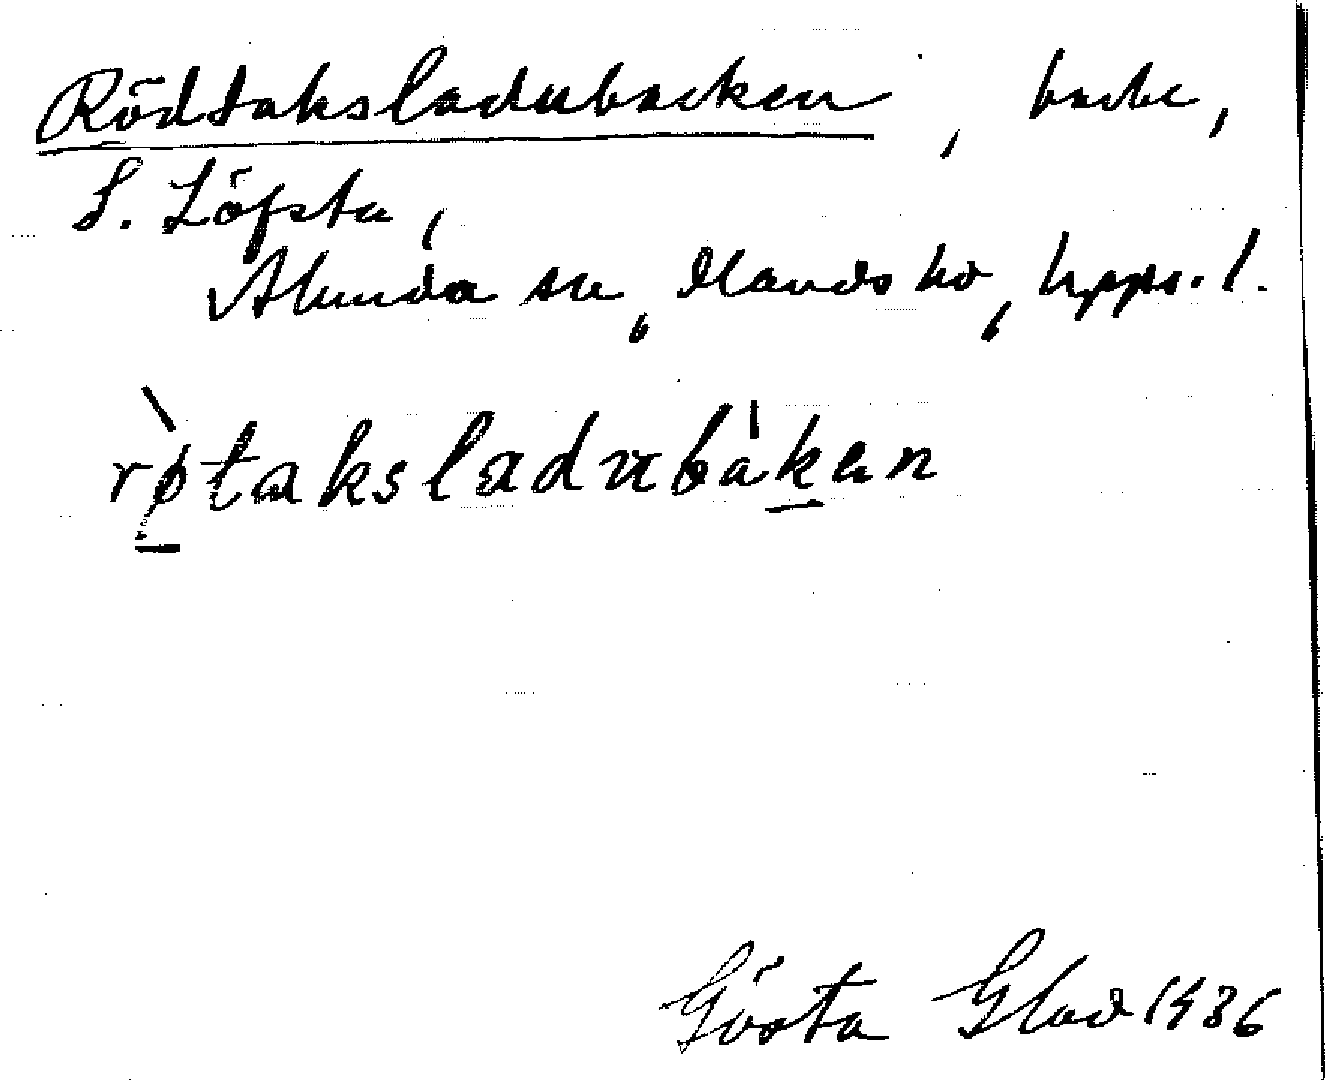 Rödtaksladubacken, backe,
S. Löfsta,
Alunda sn, Olands hd, Upps. l.
rø̀taksladubàken
Gösta Glad 1936